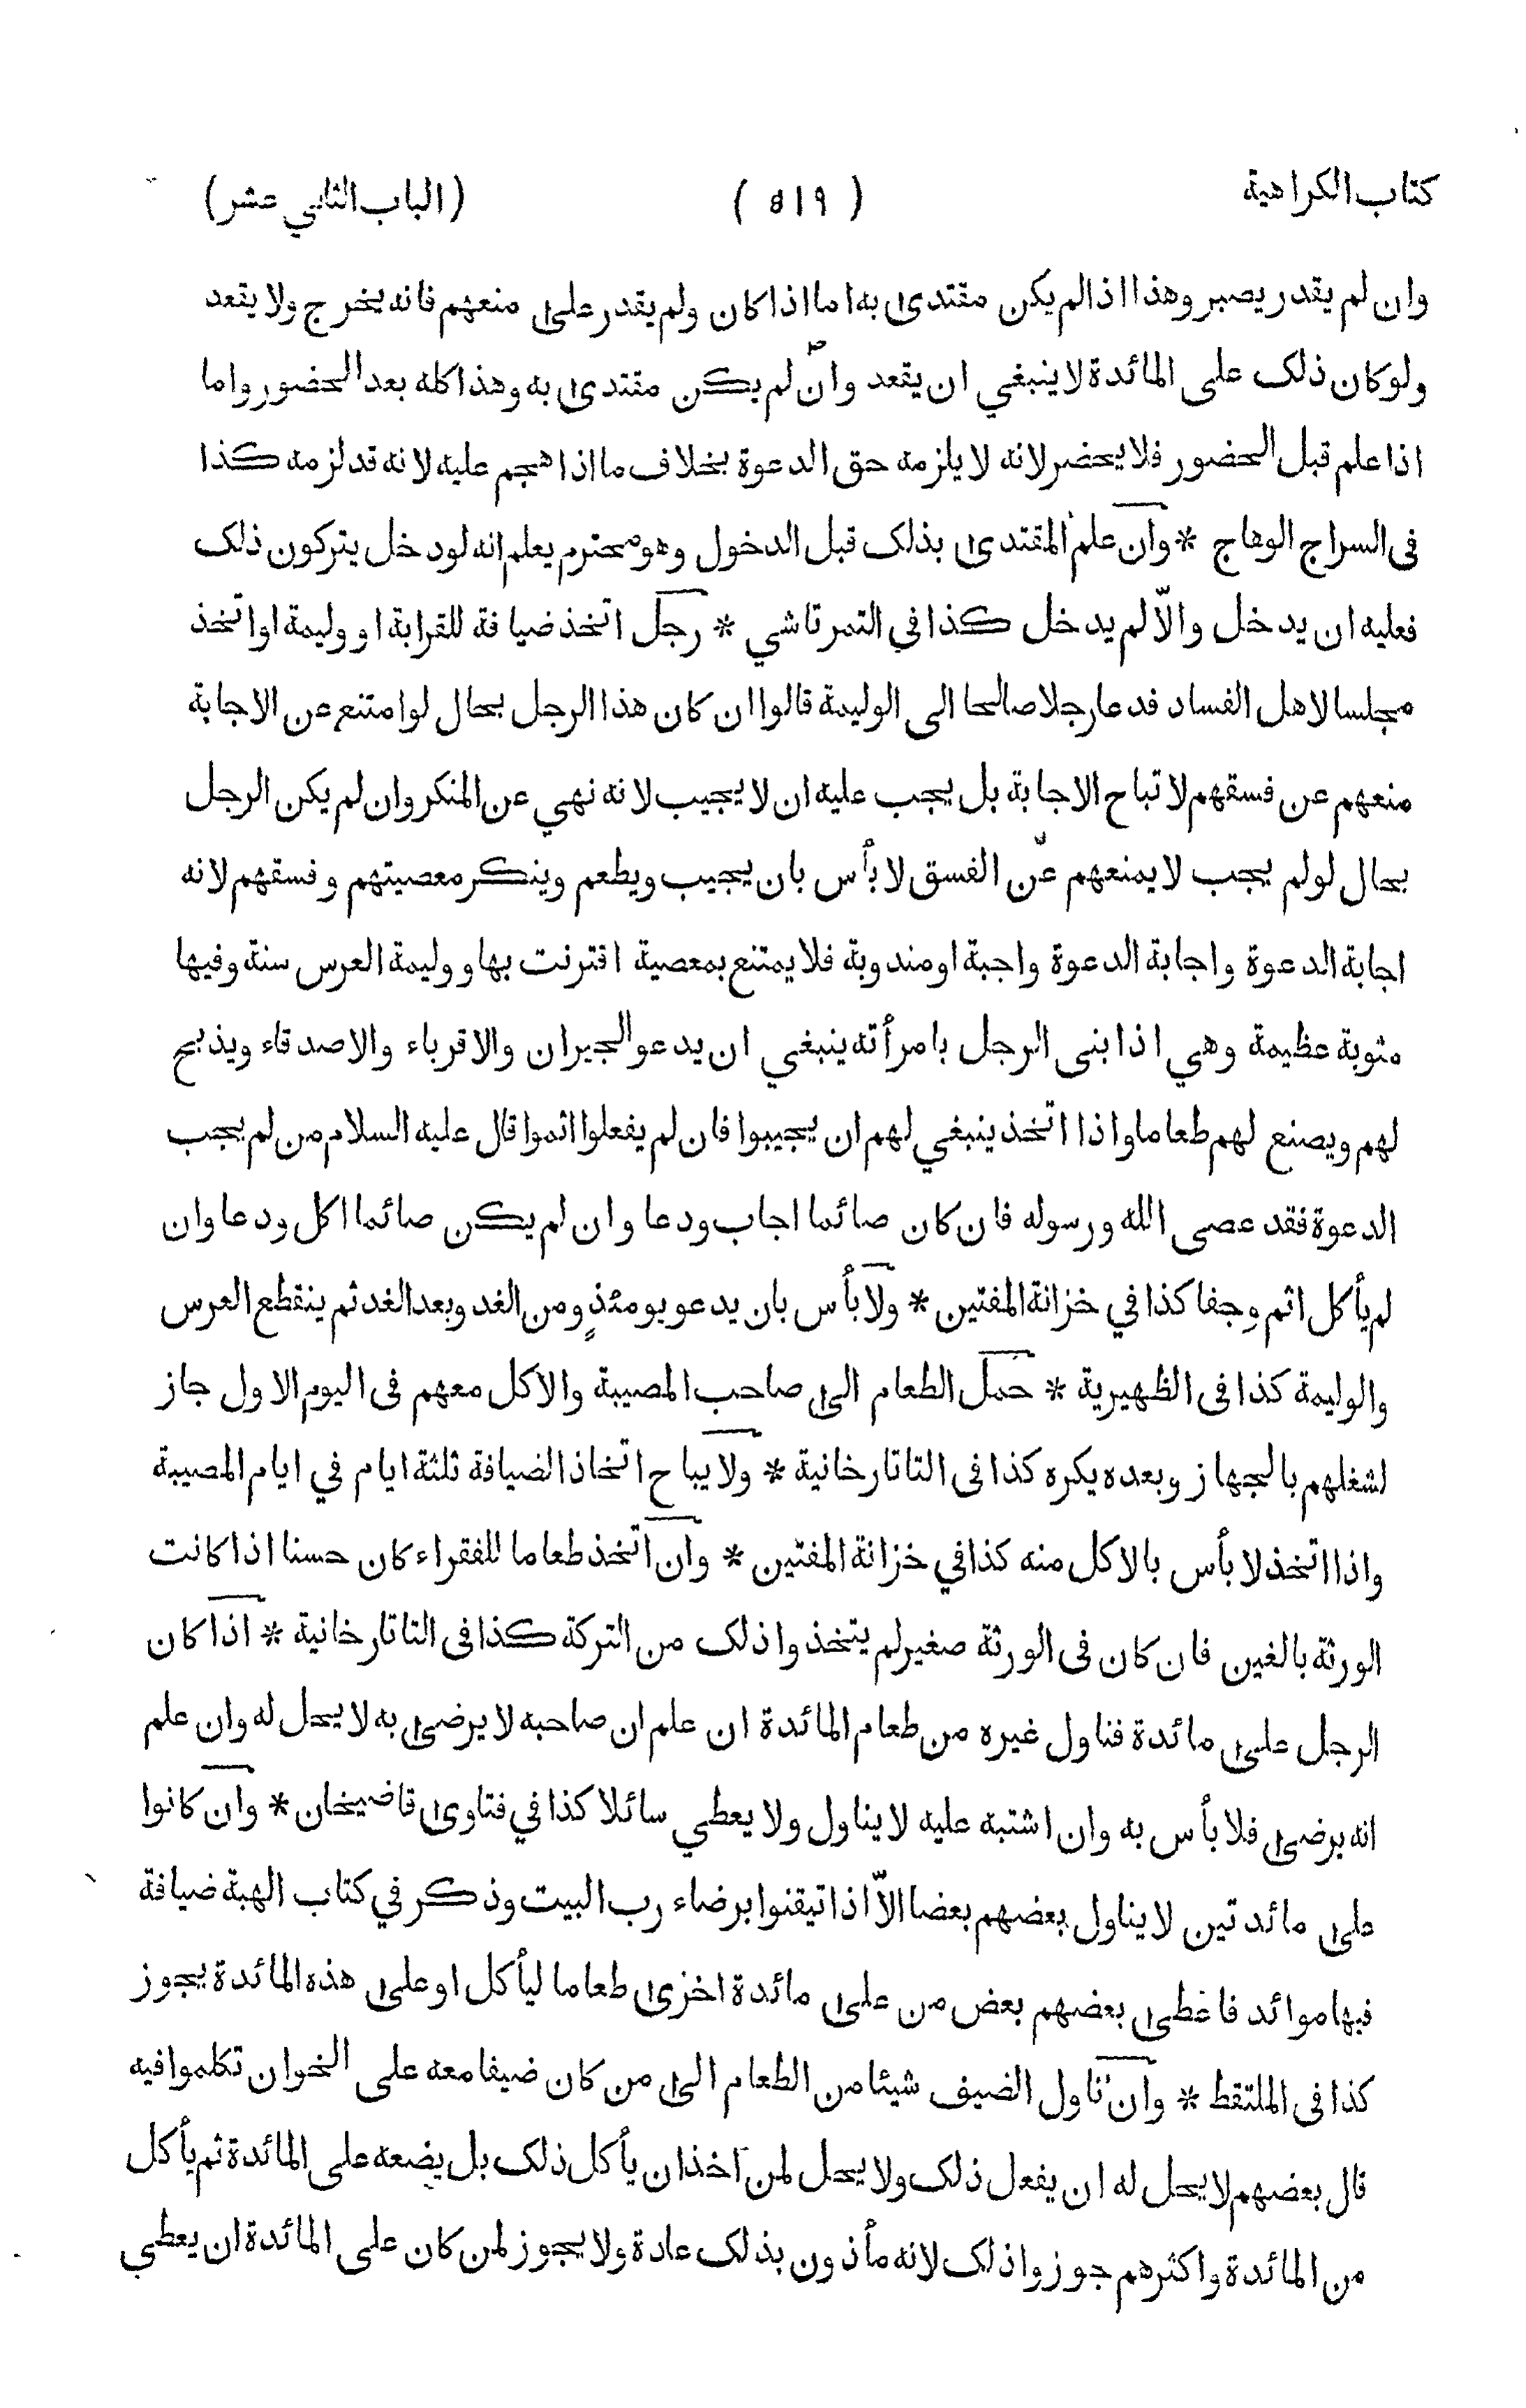 كتاب الكراهية
( ٥١٩ )
(الباب الثاني عشر)
وان لم يقدر يصبر وهذا اذا لم يكن مقتدى به اما اذا كان ولم يقدر على منعهم فانه يخرج ولا يقعد
ولو كان ذلك على المائدة لا ينبغي ان يقعد وان لم يكن مقتدى به وهذا كله بعد الحضور واما
اذا علم قبل الحضور فلا يحضر لانه لا يلزمه حق الدعوة بخلاف ما اذا هجم عليه لانه قد لزمه كذا
فى السراج الوهاج * وان علم المقتدى بذلك قبل الدخول وهو محترم يعلم انه لو دخل يتركون ذلك
فعليه ان يدخل والّا لم يدخل كذا في التمرتاشي * رجل اتخذ ضيافة للقرابة او وليمة او اتخذ
مجلسا لاهل الفساد فدعا رجلا صالحا الى الوليمة قالوا ان كان هذا الرجل بحال لو امتنع عن الاجابة
منعهم عن فسقهم لا تباح الاجابة بل يجب عليه ان لا يجيب لانه نهي عن المنكر وان لم يكن الرجل
بحال لو لم يجب لا يمنعهم عن الفسق لا بأس بان يجيب ويطعم وينكر معصيتهم وفسقهم لانه
اجابة الدعوة واجابة الدعوة واجبة او مندوبة فلا يمتنع بمعصية اقترنت بها ووليمة العرس سنة وفيها
مثوبة عظيمة وهي اذا بنى الرجل بامرأته ينبغي ان يدعو الجيران والاقرباء والاصدقاء ويذبح
لهم ويصنع لهم طعاما واذا اتخذ ينبغي لهم ان يجيبوا فان لم يفعلوا اثموا قال عليه السلام من لم يجب
الدعوة فقد عصى الله ورسوله فان كان صائما اجاب ودعا وان لم يكن صائما اكل ودعا وان
لم يأكل اثم وجفا كذا في خزانة المفتين * ولا بأس بان يدعو يومئذٍ ومن الغد وبعد الغد ثم ينقطع العرس
والوليمة كذا فى الظهيرية * حمل الطعام الى صاحب المصيبة والاكل معهم فى اليوم الاول جاز
لشغلهم بالجهاز وبعده يكره كذا فى التاتارخانية * ولا يباح اتخاذ الضيافة ثلثة ايام في ايام المصيبة
واذا اتخذ لا بأس بالاكل منه كذا في خزانة المفتين * وان اتخذ طعاما للفقراء كان حسنا اذا كانت
الورثة بالغين فان كان فى الورثة صغير لم يتخذوا ذلك من التركة كذا فى التاتارخانية * اذا كان
الرجل على مائدة فناول غيره من طعام المائدة ان علم ان صاحبه لا يرضى به لا يحل له وان علم
انه يرضى فلا بأس به وان اشتبه عليه لا يناول ولا يعطي سائلا كذا في فتاوى قاضيخان * وان كانوا
على مائدتين لا يناول بعضهم بعضا الّا اذا تيقنوا برضاء رب البيت وذكر في كتاب الهبة ضيافة
فيها موائد فاعطى بعضهم بعض من على مائدة اخرى طعاما ليأكل او على هذه المائدة يجوز
كذا فى الملتقط * وان ناول الضيف شيئا من الطعام الى من كان ضيفا معه على الخوان تكلموا فيه
قال بعضهم لا يحل له ان يفعل ذلك ولا يحل لمن اخذ ان يأكل ذلك بل يضعه على المائدة ثم يأكل
من المائدة واكثرهم جوزوا ذلك لانه مأذون بذلك عادة ولا يجوز لمن كان على المائدة ان يعطي